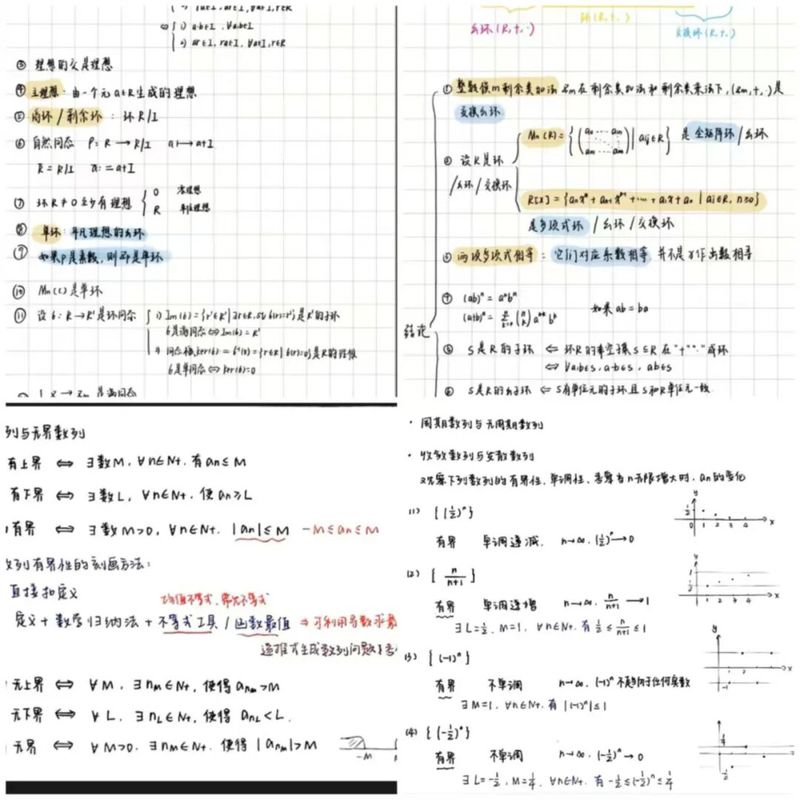 ⇔ { i) a-b∈I, ∀a,b∈I
ii) ar∈I, ra∈I, ∀a∈I, r∈R
③ 理想的交是理想
④ 主理想：由一个元 a∈R 生成的理想
⑤ 商环/剩余环：环 R/I
⑥ 自然同态 R → R/I a ↦ a+I
R̄ = R/I ā := a+I
⑦ 环 R≠0 至少有理想 { 0 零理想
R 单位理想
⑧ 单环：平凡理想的幺环
⑨ 如果P是素数，则 是单环
⑩ Mn(C)是单环
⑪ 设 6: R→R' 是环同态 { i) Im(6)={r'∈R' | ∃r∈R, s.t 6(r)=r'}是R'的子环
6是满同态 ⇔ Im(6)=R'
ii) 同态核 ker(6)=6⁻¹(0)={r∈R | 6(r)=0}是R的理想
6是单同态 ⇔ ker(6)=0
是满同态
幺环(R,+,·) 环(R,+,·) 交换环(R,+,·)
结论
① 整数模m剩余类加法 Zm在剩余类加法和剩余类乘法下，(Zm,+,·)是
交换幺环
② 设R是环/幺环/交换环
Mn(R)={ | aij∈R} 是全矩阵环/幺环
R[x]={aₙxⁿ+aₙ₋₁xⁿ⁻¹+⋯+a₁x+a₀ | ai∈R, n≥0}
是多项式环/幺环/交换环
③ 两项多项式相等：它们对应系数相等，并不是x作函数相等
④ (ab)ⁿ=aⁿbⁿ 如果ab=ba
⑤ S是R的子环 ⇐ 环R的非空子集S⊆R在"+""·"成环
⇔ ∀a,b∈S, a-b∈S, ab∈S
⑥ S是R的幺子环 ⇐ S有单位元的子环且S和R单位元一致
列与无界数列
有上界 ⇔ ∃数M, ∀n∈N+, 有 an≤M
有下界 ⇔ ∃数L, ∀n∈N+, 使 an≥L
有界 ⇔ ∃数M>0, ∀n∈N+, |an|≤M -M≤an≤M
数列有界性的刻画方法：
直接扣定义
均值不等式，
定义+数学归纳法+不等式工具/函数最值 ⇒可利用导数求最
递推式生成数列问题
无上界 ⇔ ∀M, ∃nM∈N+, 使得 anM>M
无下界 ⇔ ∀L, ∃nL∈N+, 使得 anL<L.
无界 ⇔ ∀M>0, ∃nM∈N+, 使得 |anM|>M
-M M
· 周期数列与无周期数列
· 收敛数列与发散数列
观察下列数列的有界性，单调性，考察当n无限增大时，an的变化
(1) {(1/2)ⁿ}
有界 单调递减. n→∞, (1/2)ⁿ→0
(2) {n/(n+1)}
有界 单调递增 n→∞, n/(n+1)→1
∃L=1/2, M=1, ∀n∈N+, 有 1/2≤n/(n+1)≤1
(3) {(-1)ⁿ}
有界 不单调 n→∞, (-1)ⁿ不趋向于任何常数
∃M=1, ∀n∈N+, 有 |(-1)ⁿ|≤1
(4) {(-1/2)ⁿ}
有界 不单调 n→∞, (-1/2)ⁿ→0
∃L=-1/2, M=1/4, ∀n∈N+, 有 -1/2≤(-1/2)ⁿ≤1/4